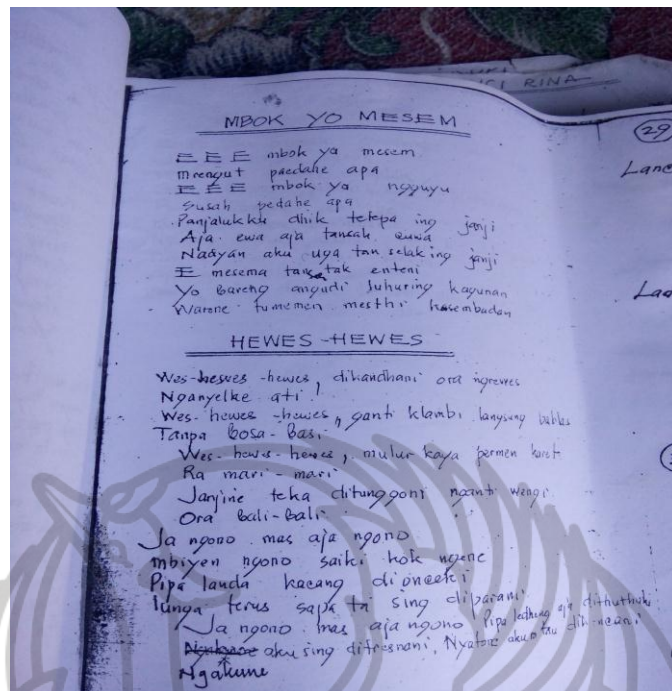 RINA
MBOK YO MESEM
29
E E E mbok ya mesem
Lanc
mrengut paedahe apa
E E E mbok ya ngguyu
Susah pedahe apa
Panjalukku dhik tetepa ing janji
Aja ewa aja tansah cuwa
Nadyan aku uga tan selak ing janji
E mesema tansa tak enteni
Yo bareng angudi luhuring kagunan
Warene tumemen mesthi kasembadan
HEWES-HEWES
Wes-hewes-hewes, dikandhani ora ngrewes
Nganyelke ati!
Wes-hewes-hewes, ganti klambi langsung bablas
Tanpa bosa-basi
Wes-hewes-hewes, mulur kaya permen karet
Ra mari-mari
Janjine teka ditunggoni nganti wengi
Ora bali-bali
Ja ngono mas aja ngono
mbiyen ngono saiki kok ngene
Pipa landa kacang dionceki
lunga terus sapa ta sing diparani
Ja ngono mas aja ngono Pipa ledhing aja dithuthuki
aku sing ditresnani, Nyatane aku
Ngakune